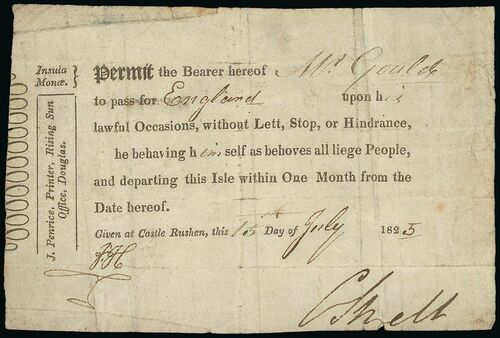 Insula
Monæ.
J. Penrice, Printer, Rising Sun
Office, Douglas.
Permit the Bearer hereof Mr Gould
to pass for England upon his
lawful Occasions, without Lett, Stop, or Hindrance,
he behaving himself as behoves all liege People,
and departing this Isle within One Month from the
Date hereof.
Given at Castle Rushen, this Day of July 1825